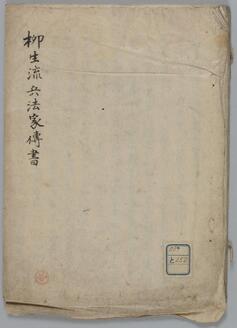 柳生流兵法家傳書
と